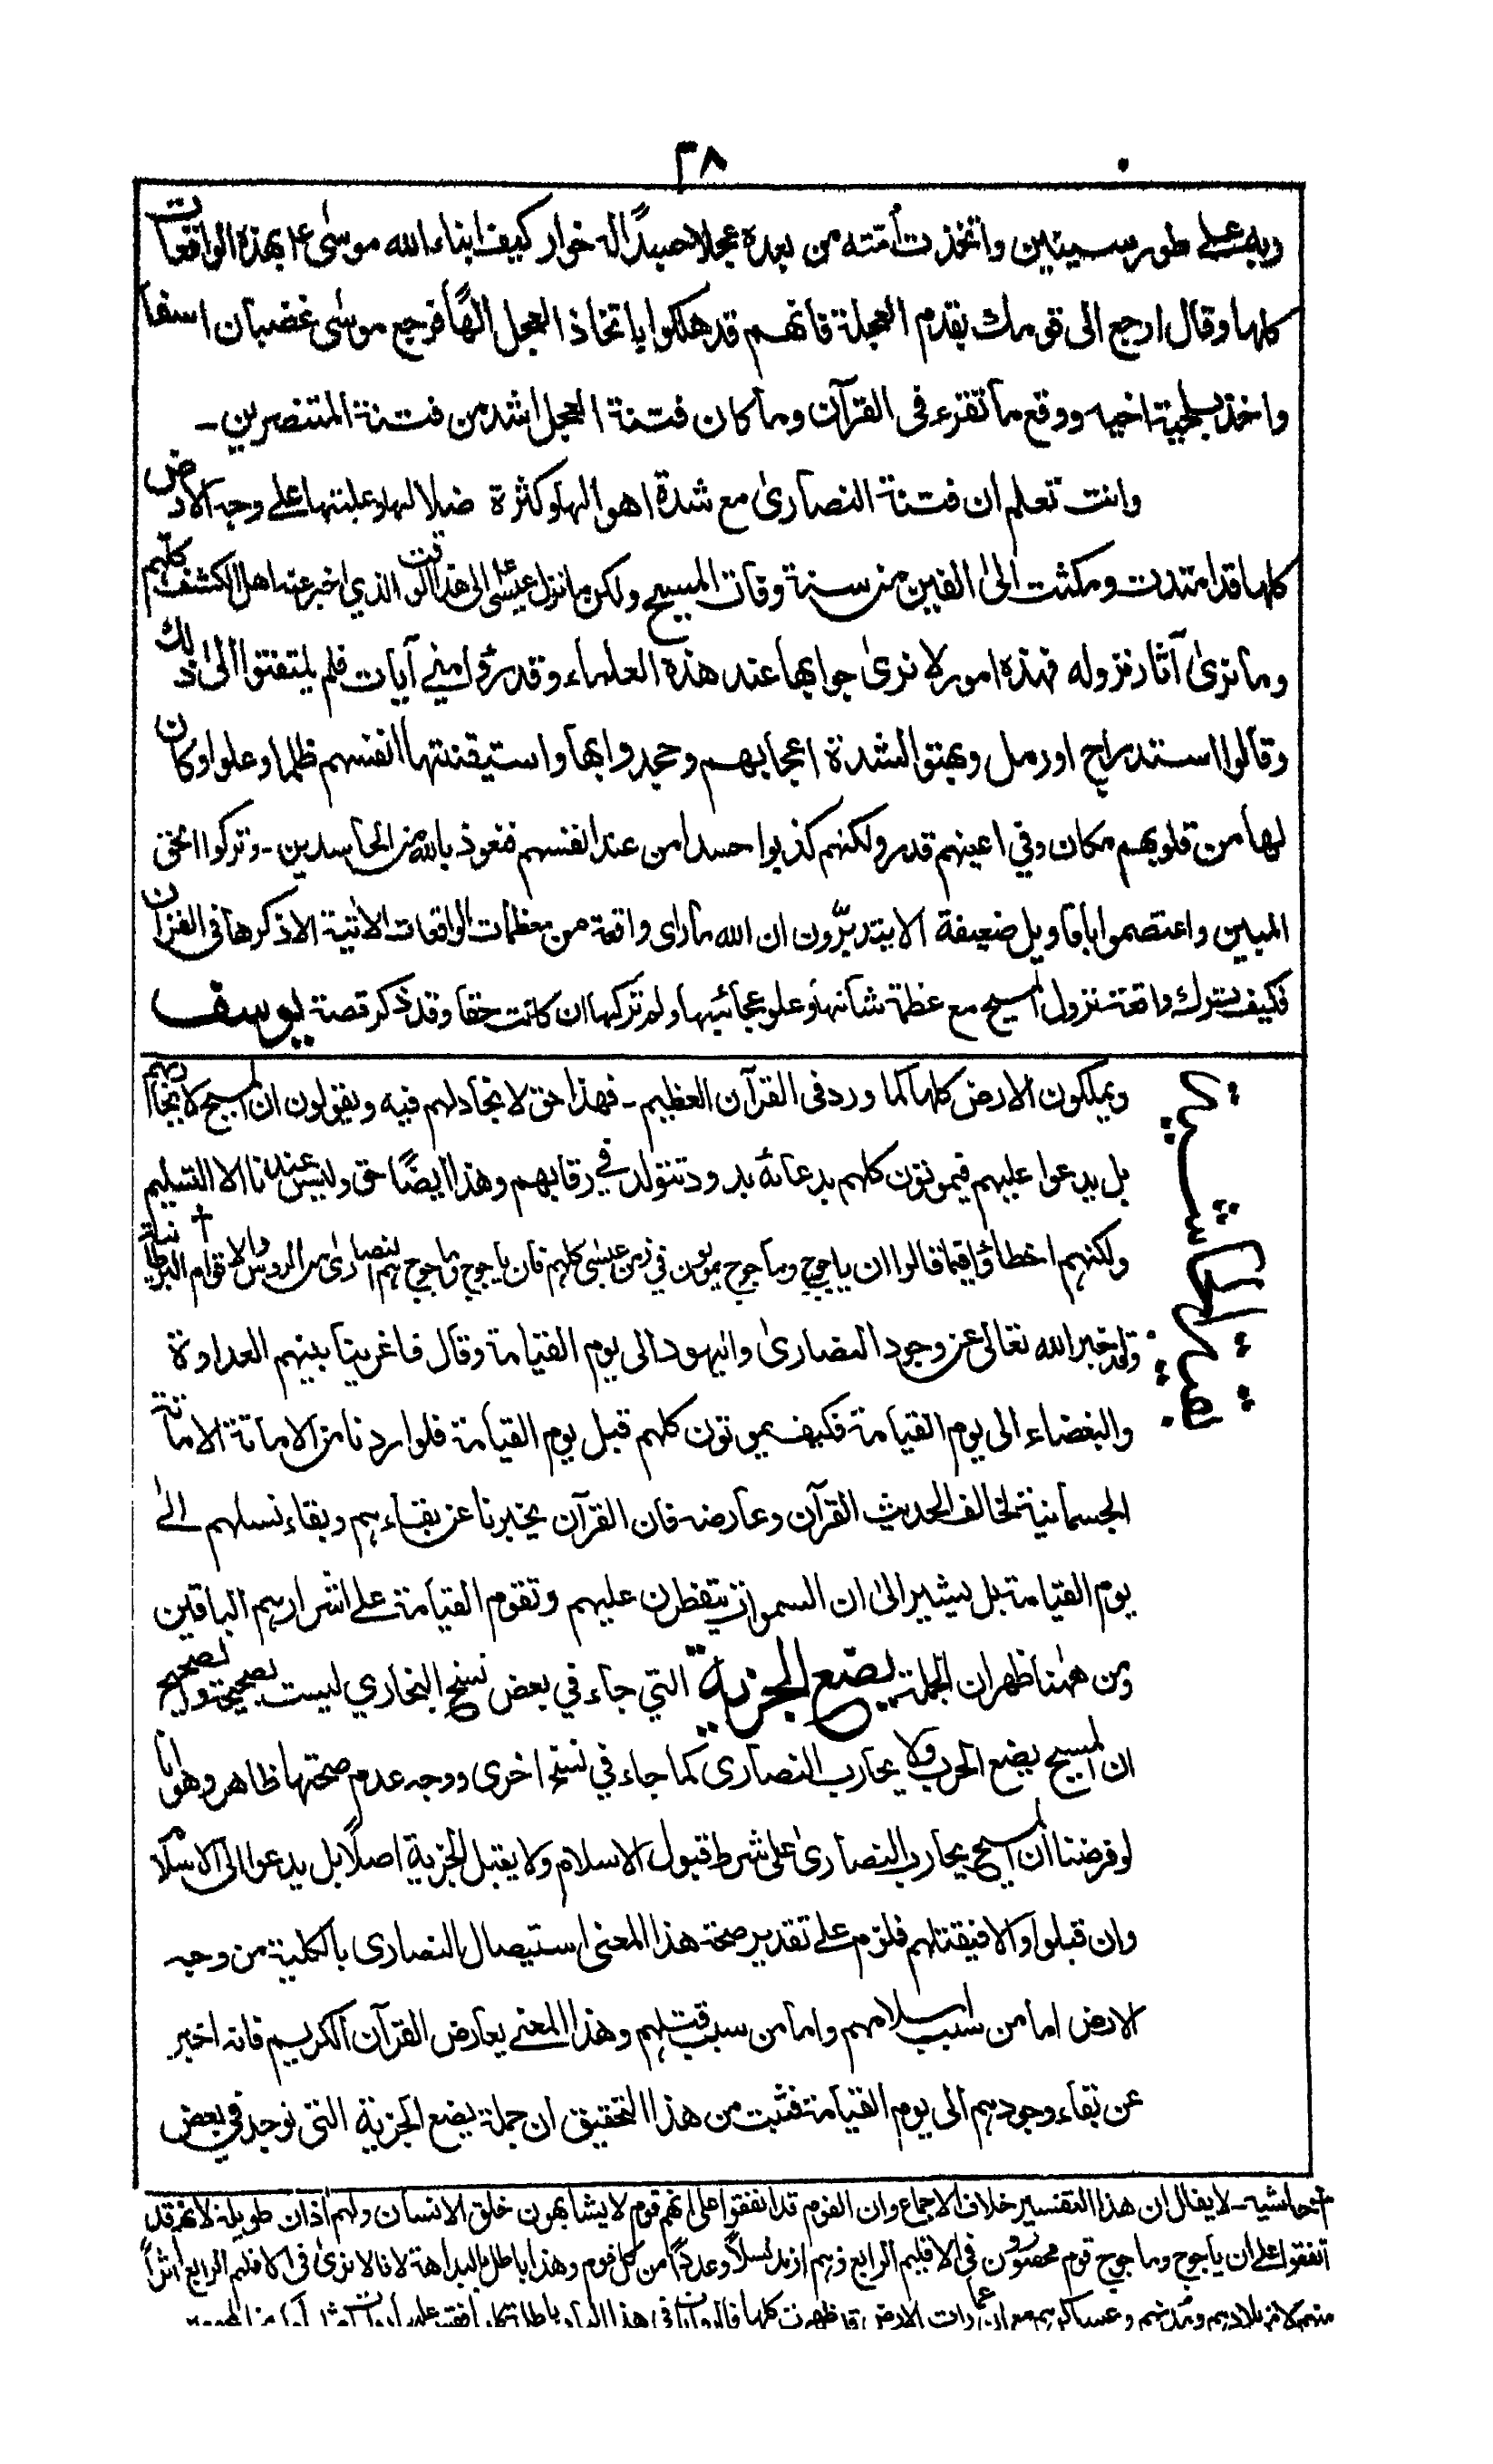 ٢٨
ربه على طور سينين واتخذت أمته من بعده عجلا جسدًا له خوار كيف انباء الله موسى ع م بهذه الواقعات
كلها وقال ارجع الى قومك بقدم العجلة فانهم قد هلكوا باتخاذ العجل الهًا فرجع موسى غضبان اسفا
واخذ بلحية اخيه ووقع ما تقرء فى القرآن وما كان فتنة العجل اشد من فتنة المتنصرين ـ
وانت تعلم ان فتنة النصارى مع شدة اهوالها وكثرة ضلالها وغلبتها على وجه الارض
كلها قد امتدت ومكثت الى الفين من سنة وفات المسيح ولكن ما نزل عيسى الى هذا الوقت الذي اخبر عنه اهل الكشف كلهم
وما نرى آثار نزوله فهذه امور لا نرى جوابها عند هذه العلماء وقد رءوا مني آيات فلم يلتفتوا الى ذلك
وقالوا استدراج او رمل وبهتوا لشدة اعجابهم وجحدوا بها واستيقنتها انفسهم ظلما وعلوا وكان
لها من قلوبهم مكان وفي اعينهم قدر ولكنهم كذبوا حسدا من عند انفسهم فنعوذ بالله من الحاسدين ـ وتركوا الحق
المبين واعتصموا باقاويل ضعيفة الا يتدبّرون ان الله ما راى واقعة من معظمات الواقعات الاتية الا ذكرها فى القرآن
فكيف يترك واقعة نزول المسيح مع عظمة شانها وعلو عجائبها ولم تركها ان كانت حقا وقد ذكر قصة يوسف
بقية الحاشية
ويملكون الارض كلها كما ورد فى القرآن العظيم ـ فهذا حق لا نجادلهم فيه ويقولون ان المسيح لا يحاربهم
بل يدعوا عليهم فيموتون كلهم بدعائه بدود تتولد في رقابهم وهذا ايضًا حق وليس عندنا الا التسليم
ولكنهم اخطأوا فيما قالوا ان ياجوج وماجوج يموتون في زمن عيسى كلهم فان ياجوج وماجوج هم النصارى من الروس والاقوام البرطانية †
وقد اخبر الله تعالى عن وجود النصارى واليهود الى يوم القيامة وقال فاغرينا بينهم العداوة
والبغضاء الى يوم القيامة فكيف يموتون كلهم قبل يوم القيامة فلو اردنا من الاماتة الاماتة
الجسمانية لخالف الحديث القرآن وعارضه فان القرآن يخبرنا عن بقاءهم وبقاء نسلهم الى
يوم القيامة بل يشير الى ان السموات يتفطرن عليهم وتقوم القيامة على اشرارهم الباقين
ومن ههنا ظهر ان الجملة يضع الجزية التي جاء في بعض نسخ البخاري ليست بصحيحة والصحيح
ان المسيح يضع الحرب ولا يحارب النصارى كما جاء في نسخ اخرى ووجه عدم صحتها ظاهر وهو انا
لو فرضنا ان المسيح يحارب النصارى على شرط قبول الاسلام ولا يقبل الجزية اصلًا بل يدعوا الى الاسلام
وان قبلوا والا فيقتلهم فلزم على تقدير صحة هذا المعنى استيصال النصارى بالكلية من وجه
الارض اما من سبب اسلامهم واما من سبب قتلهم وهذا المعنى يعارض القرآن الكريم فانه اخبر
عن بقاء وجودهم الى يوم القيامة فثبت من هذا التحقيق ان جملة يضع الجزية التى توجد في بعض
† حاشية ـ لا يقال ان هذا التفسير خلاف الاجماع وان القوم قد اتفقوا على انهم قوم لا يشابهون خلق الانسان ولهم آذان طويلة لانهم قد
اتفقوا على ان ياجوج وماجوج قوم محصورون فى الاقليم الرابع وهم ازيد نسلًا وعددًا من كل قوم وهذا باطل بالبداهة لانا لا نرى فى الاقليم الرابع أثرًا
منهم ولا من بلادهم ومدنهم وعساكرهم مع ان عمارات الارض قد ظهرت كلها